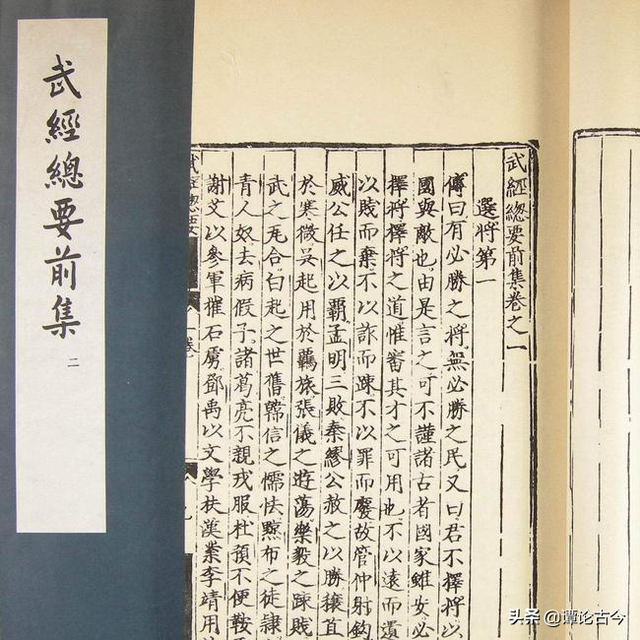 武經總要前集
二
武經總要前集卷之一
選將第一
傳曰有必勝之將無必勝之民又曰君不擇將以
國與敵也由是言之可不謹諸古者國家雖安必
擇將擇將之道惟審其才之可用也不以遠而遺
以賤而棄不以詐而疎不以罪而廢故管仲射鈎
威公任之以霸孟明三敗秦繆公赦之以勝穰苴
於寒微吳起用於羈旅張儀之遊蕩樂毅之疎賤
武之瓦合白起之世舊韓信之懦怯黥布之徒隸
青人奴去病假子諸葛亮不親戎服杜預不便鞍
謝艾以參軍摧石虜鄧禹以文學扶漢業李靖用
武經總要
一卷
九
头条 @谭论古今